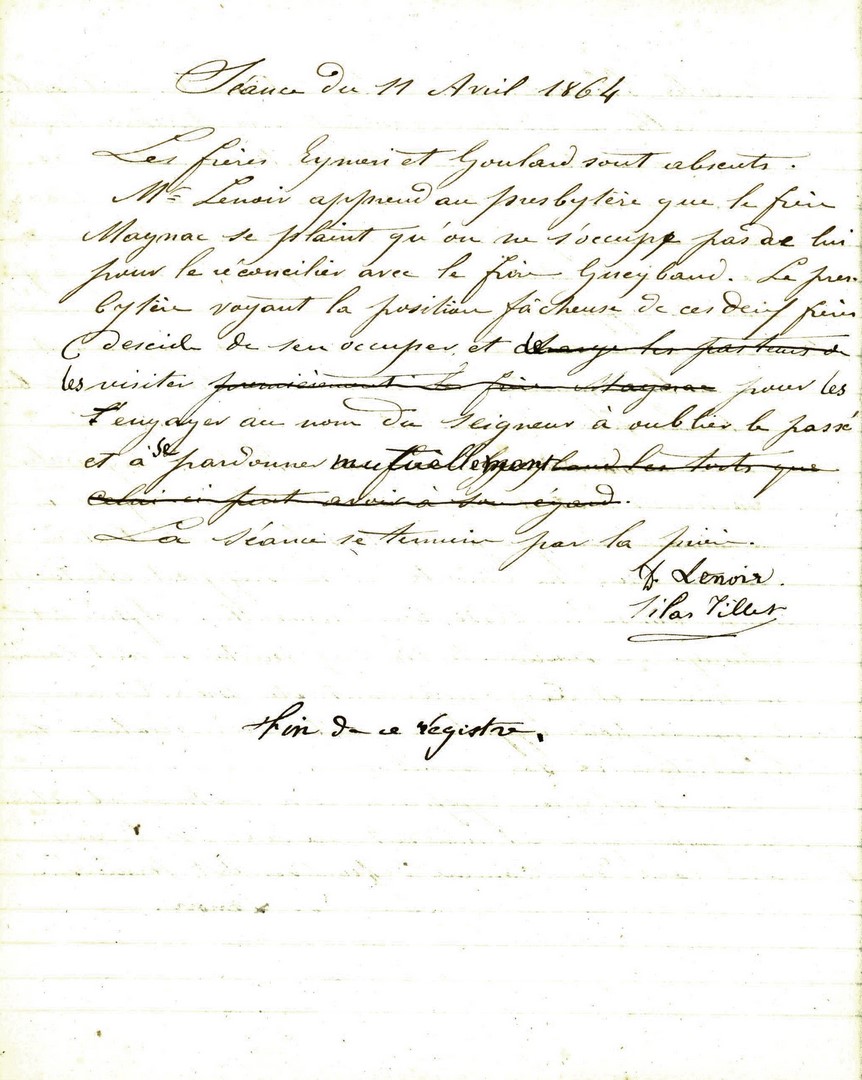 Séance du 11 Avril 1864
Les frères Eymeri et Goulard sont absents.
Mr Lenoir apprend au presbytère que le frère
Maynac se plaint qu'on ne s'occupe pas de lui
pour le réconcilier avec le frère Gueybaud. Le pres-
bytère voyant la position fâcheuse de ces deux frères
descide de s'en occuper, et de charge les pasteurs de
les visiter premièrement le frère Maynac pour les
engager au nom du Seigneur à oublier le passé
et à se pardonner mutuellement les torts que
celui ci peut avoir à son égard.
La séance se termine par la prière.
D. Lenoir.
Silas Tillet
Fin de ce régistre.